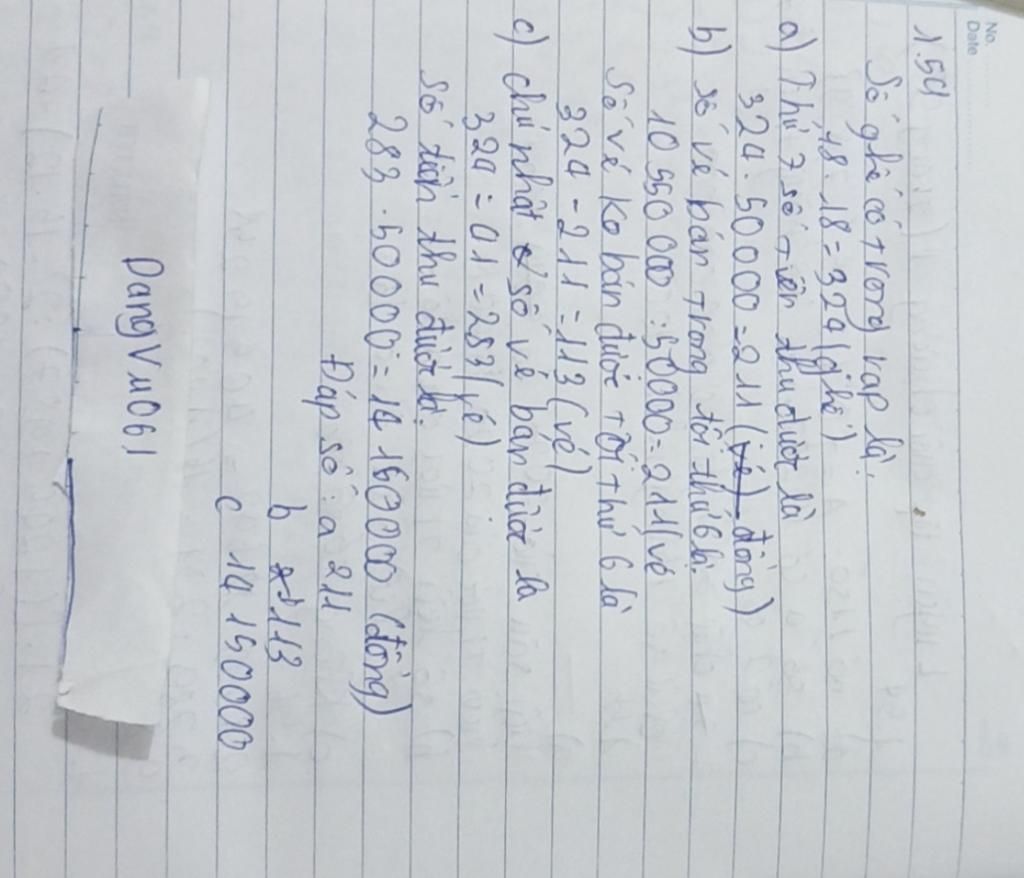 No.
Date
1.54
Số ghế có trong rạp là.
18. 18 = 324 (ghế)
a) Thứ 7 số tiền thu được là
324. 50000 = 211 (vé) đồng)
b) số vé bán trong tối thứ 6 là.
10 550 000 : 50000 = 211 (vé
Số vé ko bán được tối thứ 6 là
324 - 211 = 113 (vé)
c) chủ nhật số vé bán được la
324 = 01 = 283 (vé)
Số tiền thu được là.
283 . 50000 = 14 150000 (đồng)
Đáp số: a 211
b 113
c 14 150000
DangVu061